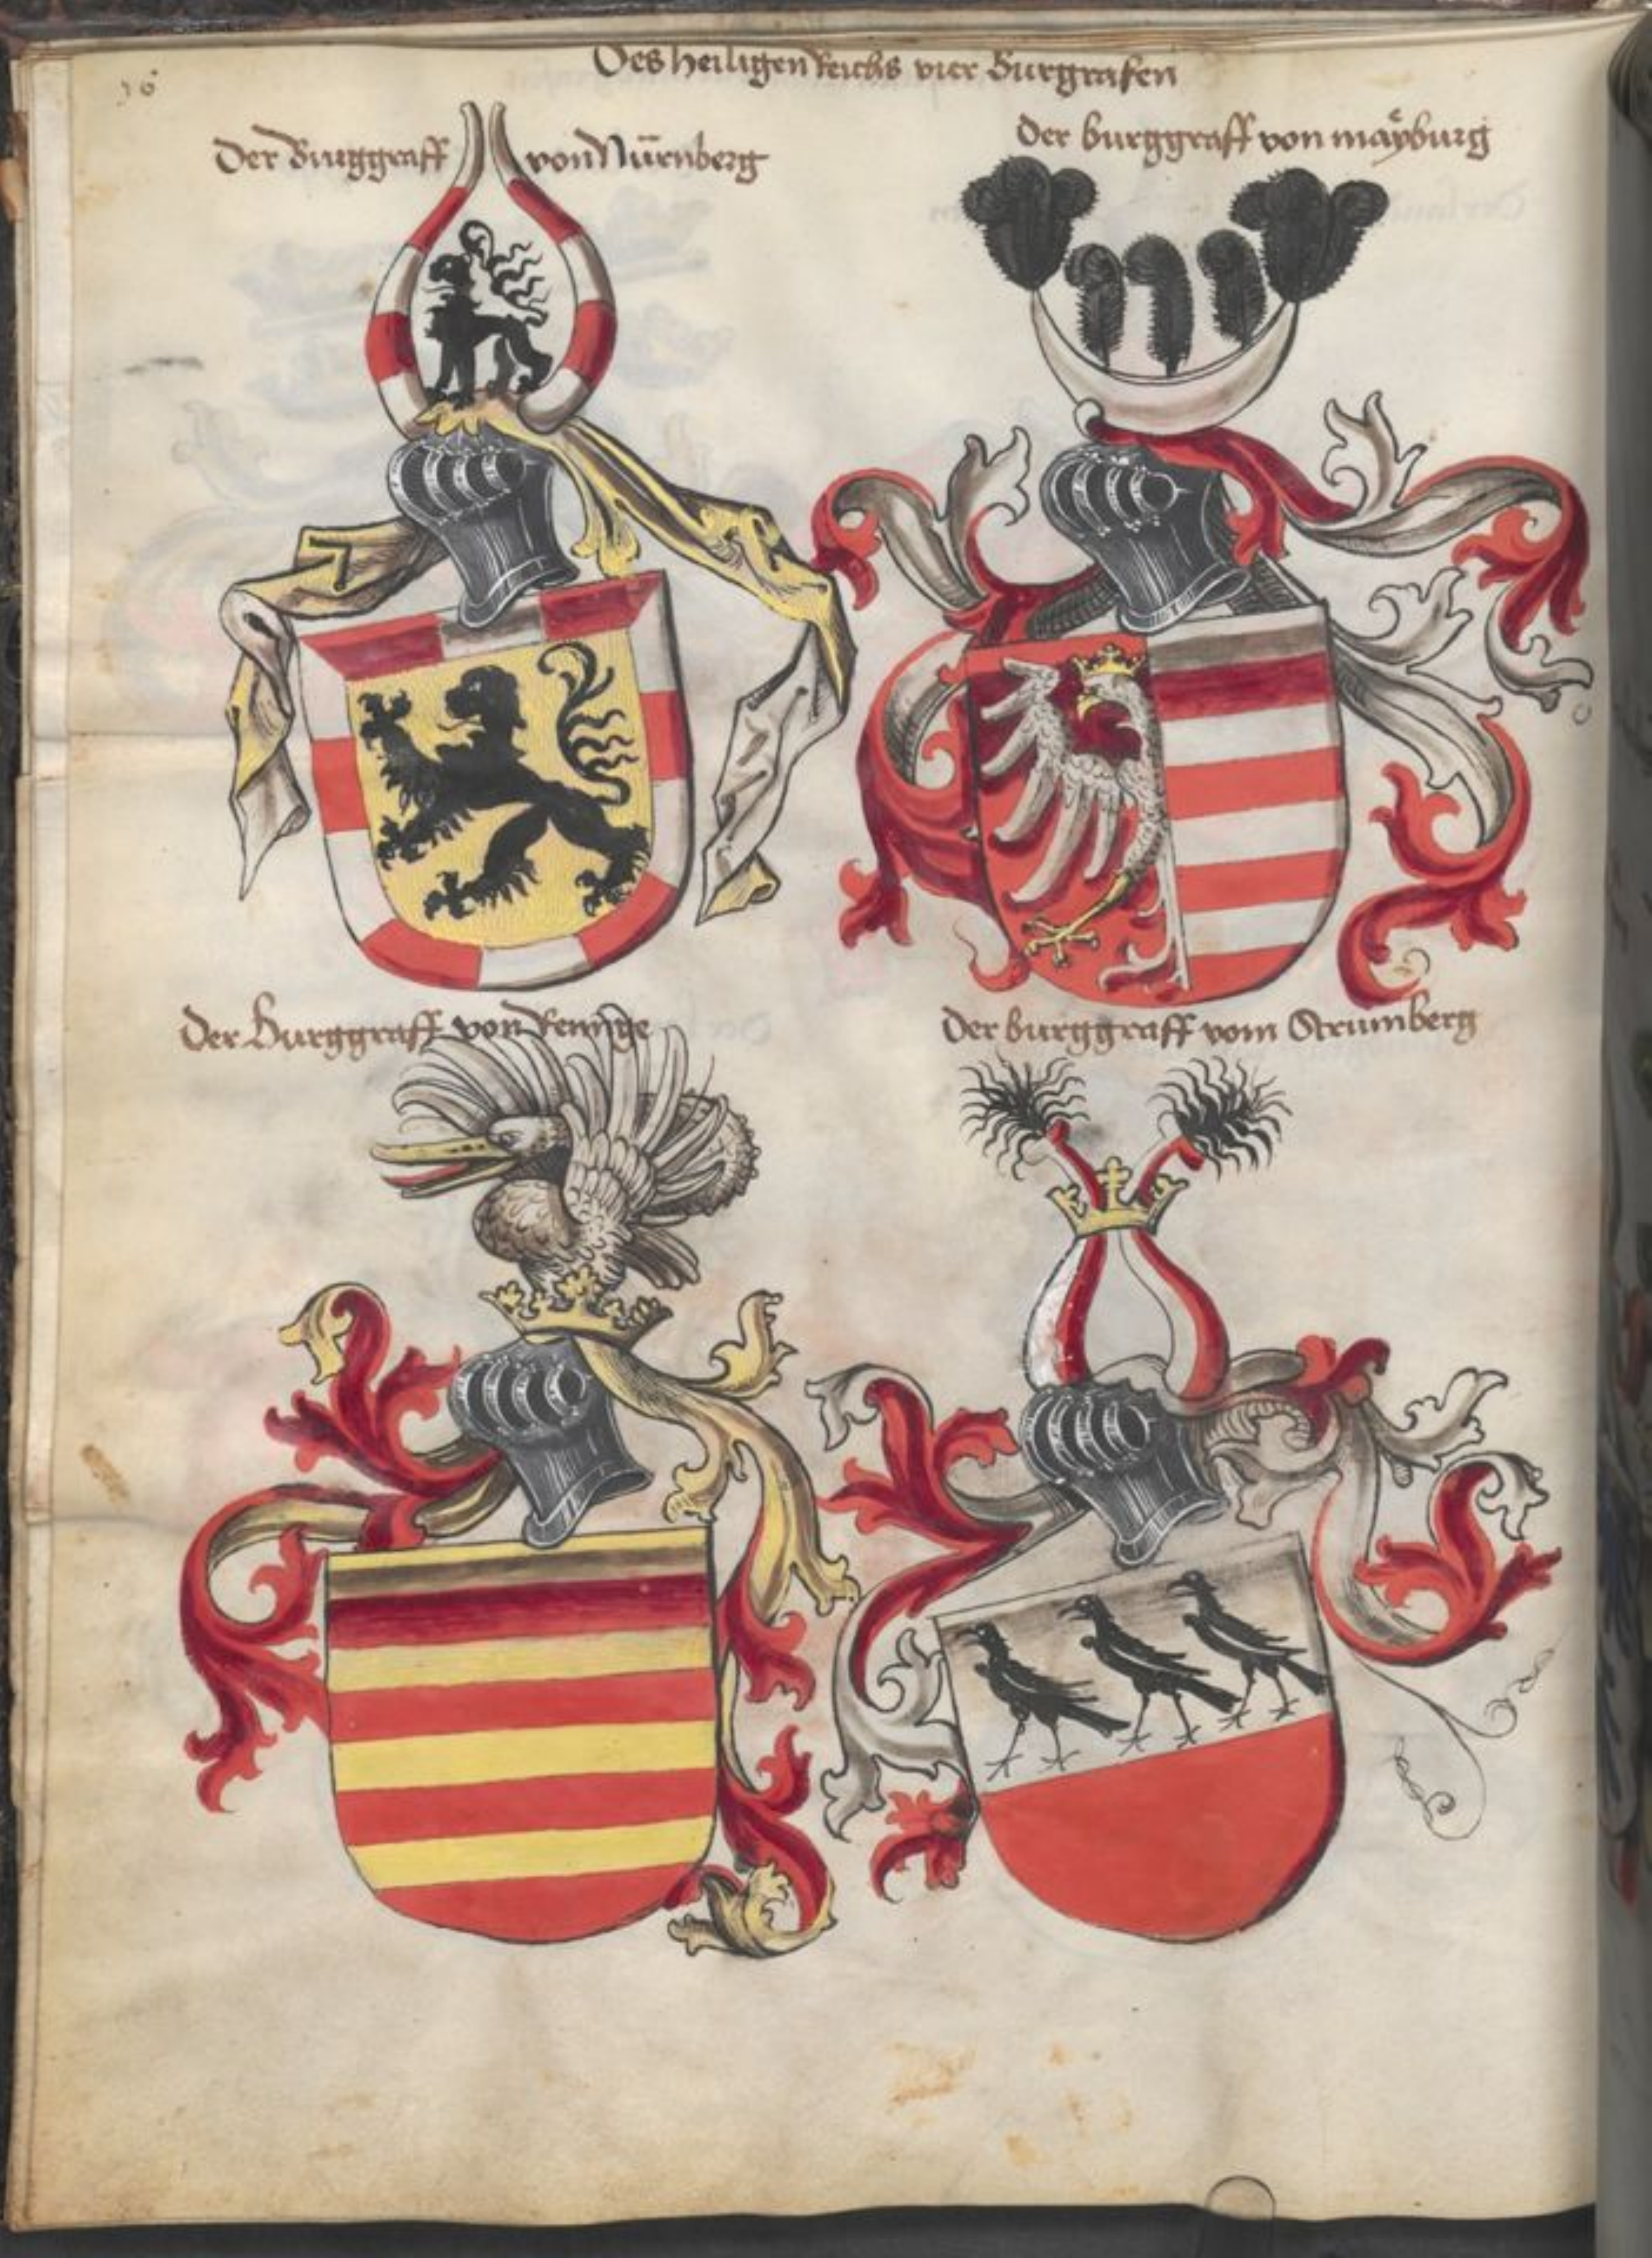 56
Des heiligen Reichs vier Burgrafen
Der Burggraff von Nürnberg
Der burggraff von maÿburg
Der Burggraff von Reinge
Der burggraff vom Strumberg